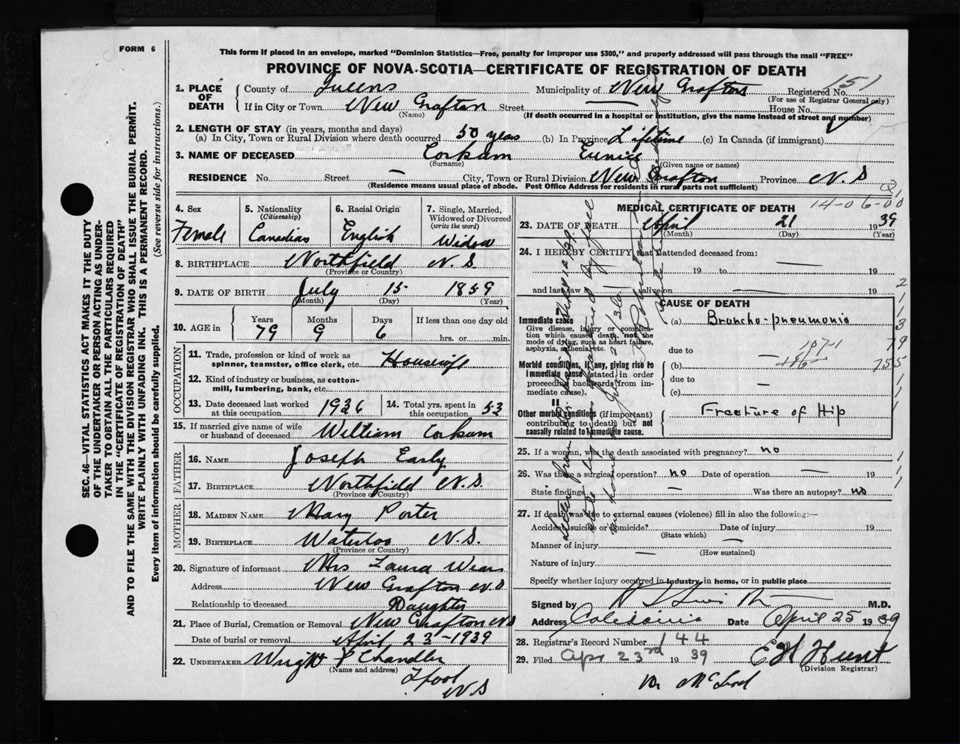 FORM 6
This form if placed in an envelope, marked "Dominion Statistics—Free, penalty for improper use $300," and properly addressed will pass through the mail "FREE"
PROVINCE OF NOVA SCOTIA—CERTIFICATE OF REGISTRATION OF DEATH
SEC. 46—VITAL STATISTICS ACT MAKES IT THE DUTY
OF THE UNDERTAKER OR PERSON ACTING AS UNDER-
TAKER TO OBTAIN ALL THE PARTICULARS REQUIRED
IN THE "CERTIFICATE OF REGISTRATION OF DEATH"
AND TO FILE THE SAME WITH THE DIVISION REGISTRAR WHO SHALL ISSUE THE BURIAL PERMIT.
WRITE PLAINLY WITH UNFADING INK. THIS IS A PERMANENT RECORD.
Every item of information should be carefully supplied. (See reverse side for instructions.)
1. PLACE OF DEATH County of Queens Municipality of New Grafton Registered No. 151
(For use of Registrar General only)
If in City or Town New Grafton Street House No.
(Name) (If death occurred in a hospital or institution, give the name instead of street and number)
2. LENGTH OF STAY (in years, months and days)
(a) In City, Town or Rural Division where death occurred 50 years (b) In Province Lifetime (c) In Canada (if immigrant)
3. NAME OF DECEASED Corkum Eunice
(Surname) (Given name or names)
RESIDENCE No. Street — City, Town or Rural Division New Grafton Province N.S
(Residence means usual place of abode. Post Office Address for residents in rural parts not sufficient)
4. Sex Female
5. Nationality (Citizenship) Canadian
6. Racial Origin English
7. Single, Married, Widowed or Divorced (write the word) Widow
8. BIRTHPLACE Northfield N.S.
(Province or Country)
9. DATE OF BIRTH July 15 1859
(Month) (Day) (Year)
10. AGE in Years 79 Months 9 Days 6 If less than one day old hrs. or min.
OCCUPATION
11. Trade, profession or kind of work as spinner, teamster, office clerk, etc. Housewife
12. Kind of industry or business, as cotton-mill, lumbering, bank, etc.
13. Date deceased last worked at this occupation 1936
14. Total yrs. spent in this occupation 53
15. If married give name of wife or husband of deceased William Corkum
FATHER
16. NAME Joseph Early
17. BIRTHPLACE Northfield N.S.
(Province or Country)
MOTHER
18. MAIDEN NAME Mary Porter
19. BIRTHPLACE Waterloo N.S.
(Province or Country)
20. Signature of informant Mrs Laura
Address New Grafton N.S
Relationship to deceased Daughter
21. Place of Burial, Cremation or Removal New Grafton NS
Date of burial or removal April 23-1939
22. UNDERTAKER Wright & Chandler
(Name and address)
L'pool
N.S
MEDICAL CERTIFICATE OF DEATH
14-06-00
23. DATE OF DEATH April 21 1939
(Month) (Day) (Year)
24. I HEREBY CERTIFY that I attended deceased from —
19 to — 19
and last saw alive on 19
CAUSE OF DEATH
Immediate cause
Give disease, injury or complication which caused death, not the mode of dying, such as heart failure, asphyxia, asthenia, etc.
(a) Broncho-pneumonia
due to
Morbid conditions, if any, giving rise to immediate cause (stated in order proceeding backwards from immediate cause).
(b) —
due to
(c) —
II
Other morbid conditions (if important) contributing to death but not causally related to immediate cause.
Fracture of Hip
25. If a woman, was the death associated with pregnancy? no
26. Was there a surgical operation? no Date of operation — 19
State findings — Was there an autopsy? no
27. If death was due to external causes (violence) fill in also the following:—
Accident, suicide or homicide? — Date of injury 19
(State which)
Manner of injury —
(How sustained)
Nature of injury —
Specify whether injury occurred in industry, in home, or in public place
Signed by M.D.
Address Caledonia Date April 25 1939
28. Registrar's Record Number 144
29. Filed Apr 23rd 1939 E H Hunt
(Division Registrar)